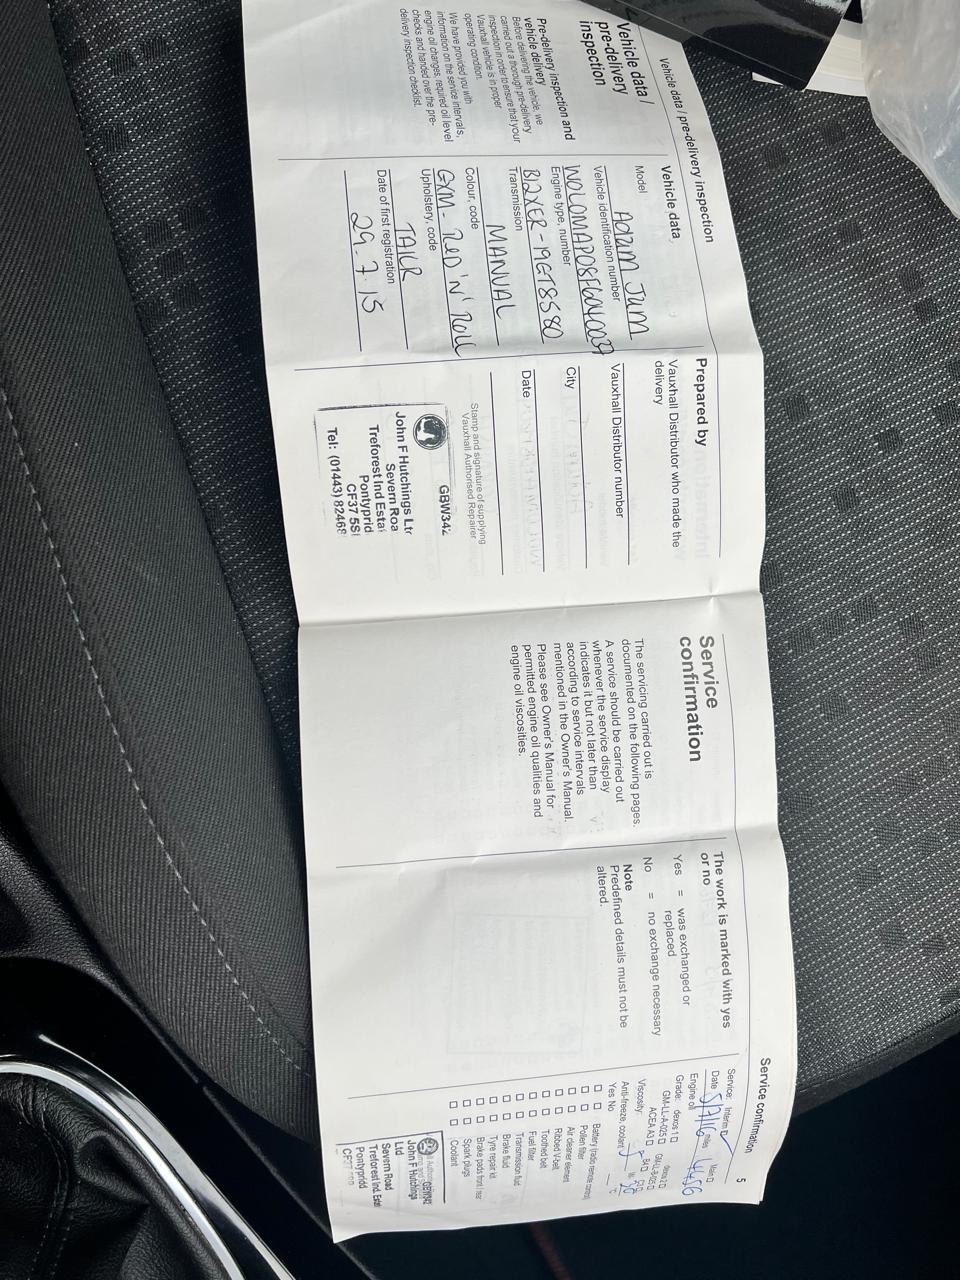 Vehicle data / pre-delivery inspection
Vehicle data /
pre-delivery
inspection
Pre-delivery inspection and
vehicle delivery
Before delivering the vehicle, we
carried out a thorough pre-delivery
inspection in order to ensure that your
Vauxhall vehicle is in proper
operating condition.
We have provided you with
information on the service intervals,
engine oil changes, required oil level
checks and handed over the pre-
delivery inspection checklist.
Vehicle data
Model
ADAM JAM
Vehicle identification number
W0L0MAP08F6040037
Engine type, number
B12XER-19GT8580
Transmission
MANUAL
Colour, code
GYM- RED 'N' ROLL
Upholstery, code
TAKR
Date of first registration
29.7.15
Prepared by
Vauxhall Distributor who made the
delivery
Vauxhall Distributor number
City
Date
Stamp and signature of supplying
Vauxhall Authorised Repairer
GBW342
John F Hutchings Ltd
Severn Roa
Treforest Ind Estat
Pontyprid
CF37 5S
Tel: (01443) 82468
Service
confirmation
The servicing carried out is
documented on the following pages.
A service should be carried out
whenever the service display
indicates it but not later than
according to service intervals
mentioned in the Owner's Manual.
Please see Owner's Manual for
permitted engine oil qualities and
engine oil viscosities.
The work is marked with yes
or no
Yes = was exchanged or
replaced
No = no exchange necessary
Note
Predefined details must not be
altered.
Service confirmation 5
Service: Interim Main
Date 5/7/16 miles
Engine oil
Grade: dexos 1 dexos 2
GM-LL-A-025 GM-LL-B-025
ACEA A3 B4 C3
Viscosity: W 30
Anti-freeze, coolant °C
Yes No
Battery (radio remote control)
Pollen filter
Air cleaner element
Ribbed V-belt
Toothed belt
Fuel filter
Transmission fluid
Brake fluid
Tyre repair kit
Brake pads front / rear
Spark plugs
Coolant
GBW342
John F Hutchings
Ltd
Severn Road
Treforest Ind. Estate
Pontypridd